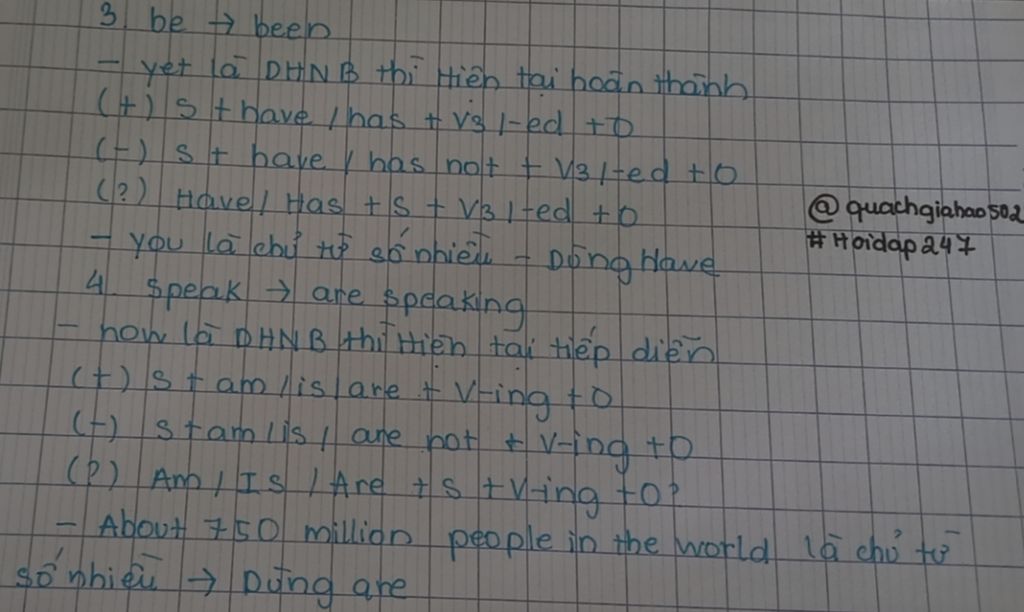 3. be → been
- yet là DHNB thì Hiện tại hoàn thành
(+) S + have / has + V3 / -ed + O
(-) S + have / has not + V3 / -ed + O
(?) Have / Has + S + V3 / -ed + O
@quachgiahao502
#Hoidap247
- you là chủ từ số nhiều - Dùng Have
4. Speak → are speaking
- now là DHNB thì Hiện tại tiếp diễn
(+) S + am / is / are + V-ing + O
(-) S + am / is / are not + V-ing + O
(?) Am / Is / Are + S + V-ing + O?
- About 750 million people in the world là chủ từ
số nhiều → Dùng are